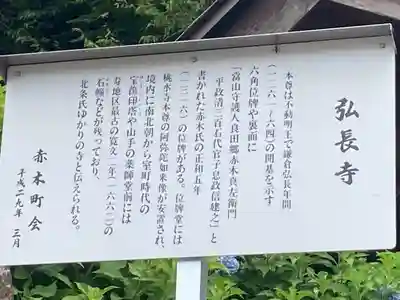 弘長寺
本尊は不動明王で鎌倉弘長年間
(一二六一~六四)の開基を示す
六角位牌や裏面に
「富山守護人良田郷赤木真左衛門
平政清三百石代官子息政信建之」と
書かれた赤木氏の正和五年
(一三一六)の位牌がある。位牌堂には
桃水寺本尊の阿弥陀如来像が安置され、
境内に南北朝から室町時代の
宝篋印塔や山手の薬師堂前には
寿地区最古の寛文二年(一六六二)の
石幢などが残っており、
北条氏ゆかりの寺と伝えられる。
赤木町会
平成二九年 三月